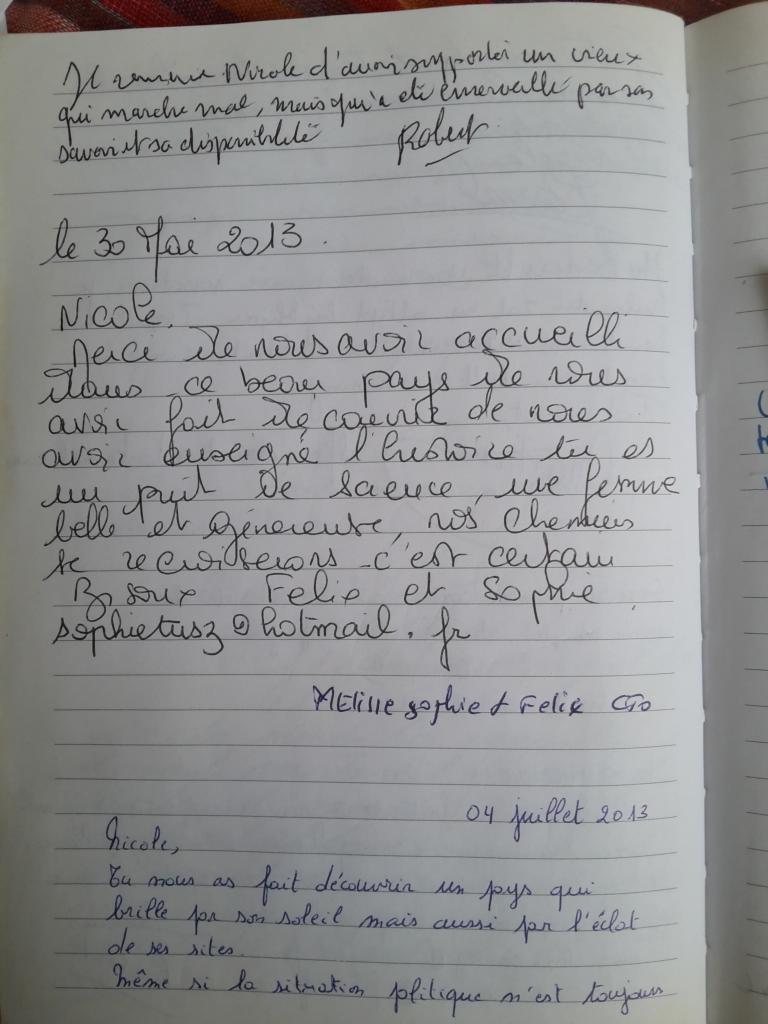 Je remercie Nicole d'avoir supporté un vieux
qui marche mal, mais qui a été émerveillé par son
savoir et sa disponibilité Robert
le 30 Mai 2013.
Nicole.
Merci de nous avoir accueilli
dans ce beau pays de nous
avoir fait découvrir de nous
avoir enseigné l'histoire tu es
un puit de science, une femme
belle et généreuse, nos chemins
se recroiserons c'est certain
Bisoux Felix et Sophie
sophietusz@hotmail.fr
sophie & Felix
04 juillet 2013
Nicole,
Tu nous as fait découvrir un pays qui
brille par son soleil mais aussi par l'éclat
de ses sites.
Même si la situation politique n'est toujours